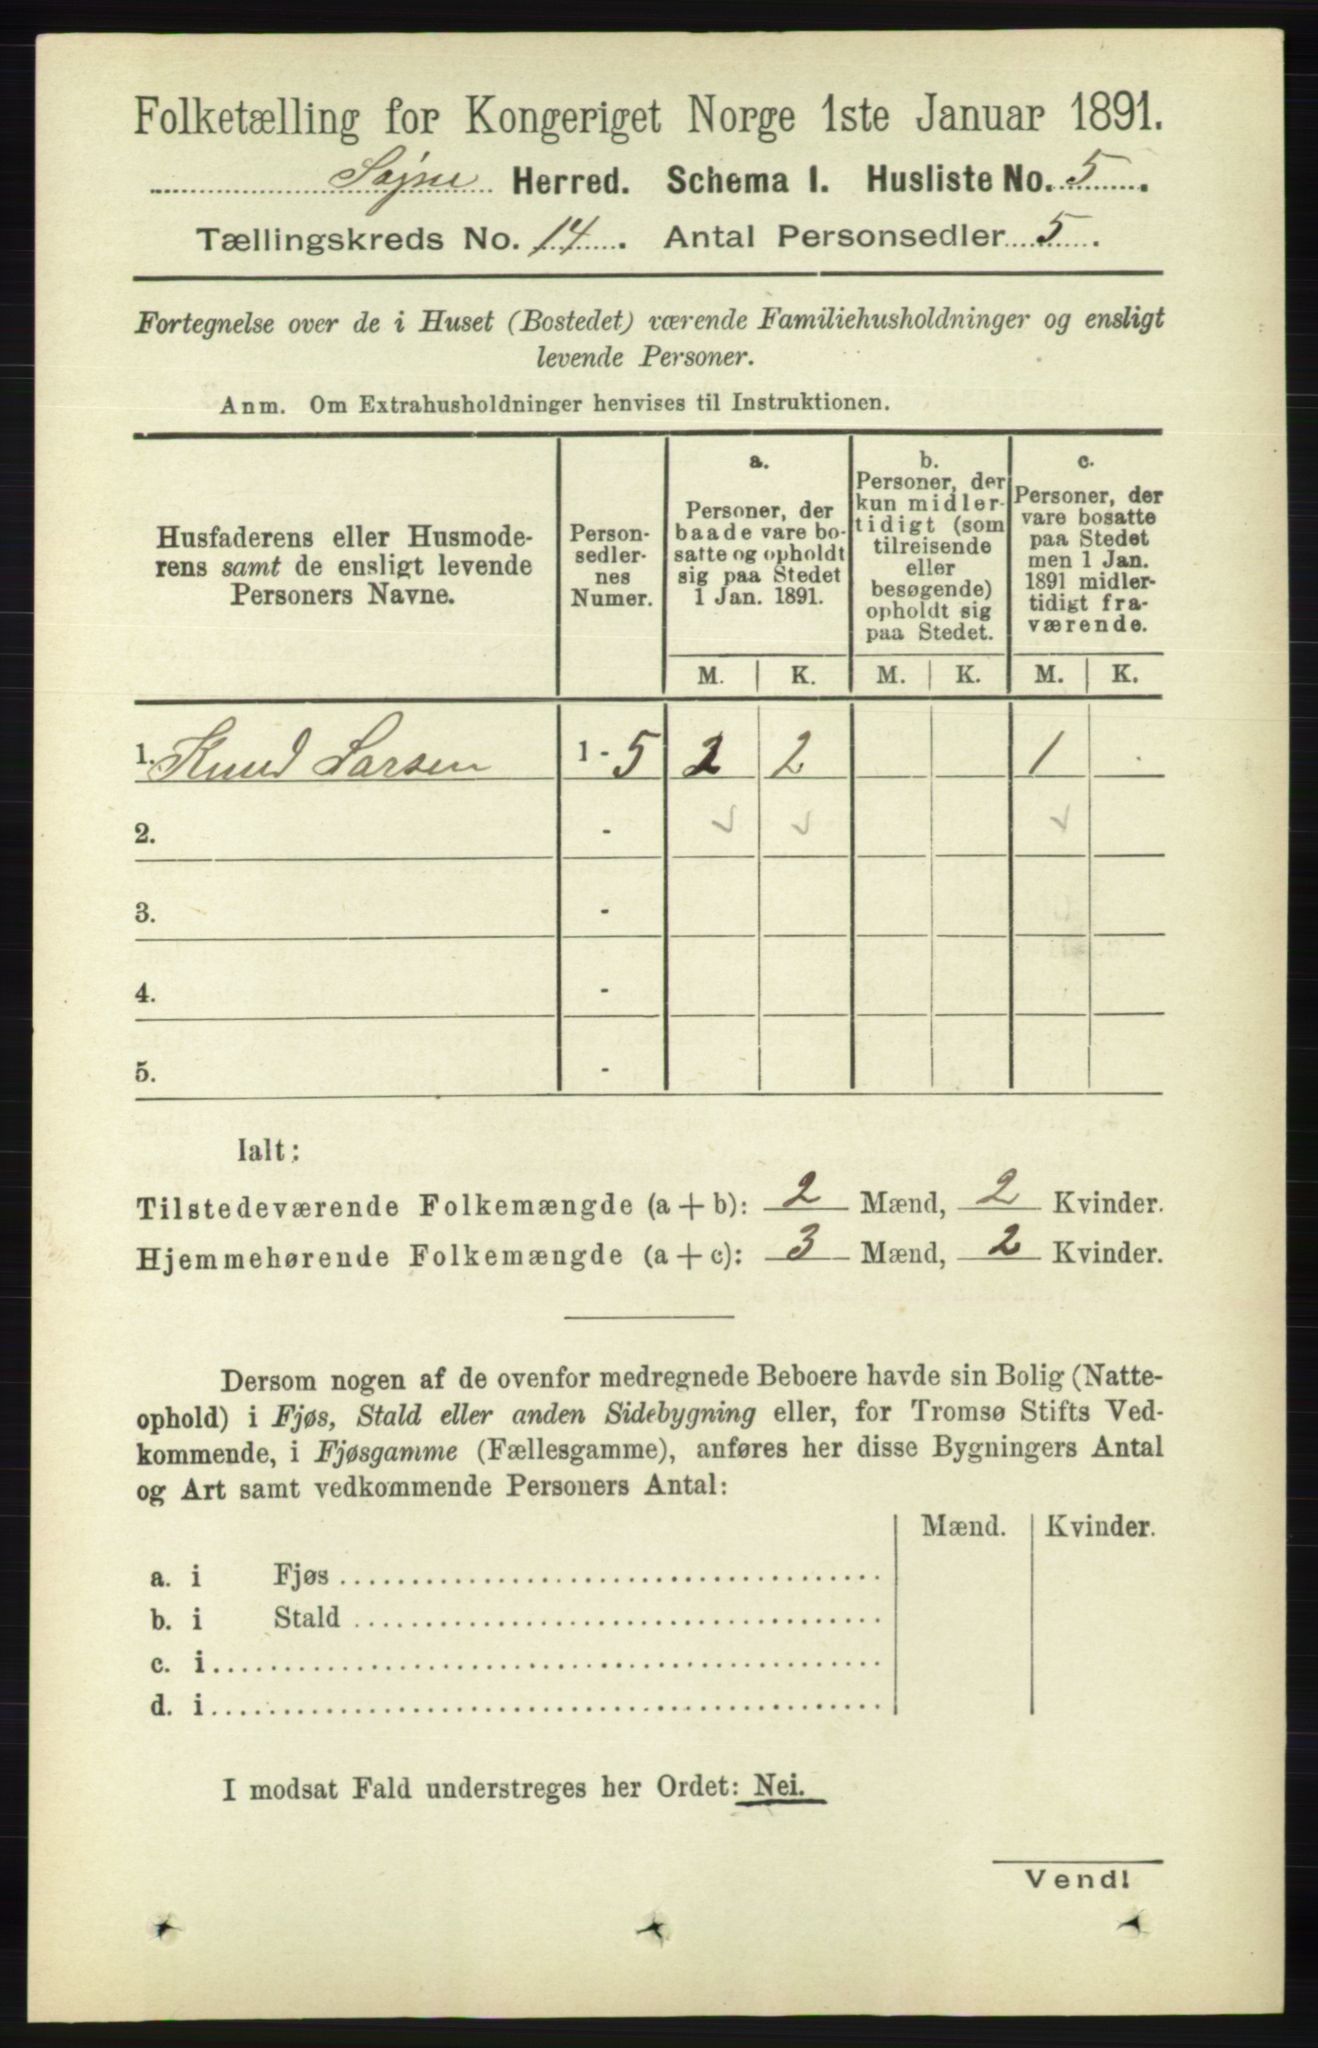 Folketælling for Kongeriget Norge 1ste Januar 1891.
Søjne Herred. Schema I. Husliste No. 5.
Tællingskreds No. 14. Antal Personsedler 5.
Fortegnelse over de i Huset (Bostedet) værende Familiehusholdninger og ensligt
levende Personer.
Anm. Om Extrahusholdninger henvises til Instruktionen.
Husfaderens eller Husmode-
rens samt de ensligt levende
Personers Navne.
Person-
sedler-
nes
Numer.
a.
Personer, der
baade vare bo-
satte og opholdt
sig paa Stedet
1 Jan. 1891.
b.
Personer, der
kun midler-
tidigt (som
tilreisende
eller
besøgende)
opholdt sig
paa Stedet.
c.
Personer, der
vare bosatte
paa Stedet
men 1 Jan.
1891 midler-
tidigt fra-
værende.
M. K. M. K. M. K.
1. Knud Larsen 1 - 5 2 2 1 .
2. - ✓ ✓ ✓
3. -
4. -
5. -
Ialt:
Tilstedeværende Folkemængde (a + b): 2 Mænd, 2 Kvinder.
Hjemmehørende Folkemængde (a + c): 3 Mænd, 2 Kvinder.
Dersom nogen af de ovenfor medregnede Beboere havde sin Bolig (Natte-
ophold) i Fjøs, Stald eller anden Sidebygning eller, for Tromsø Stifts Ved-
kommende, i Fjøsgamme (Fællesgamme), anføres her disse Bygningers Antal
og Art samt vedkommende Personers Antal:
Mænd. Kvinder.
a. i Fjøs
b. i Stald
c. i
d. i
I modsat Fald understreges her Ordet: Nei.
Vend!